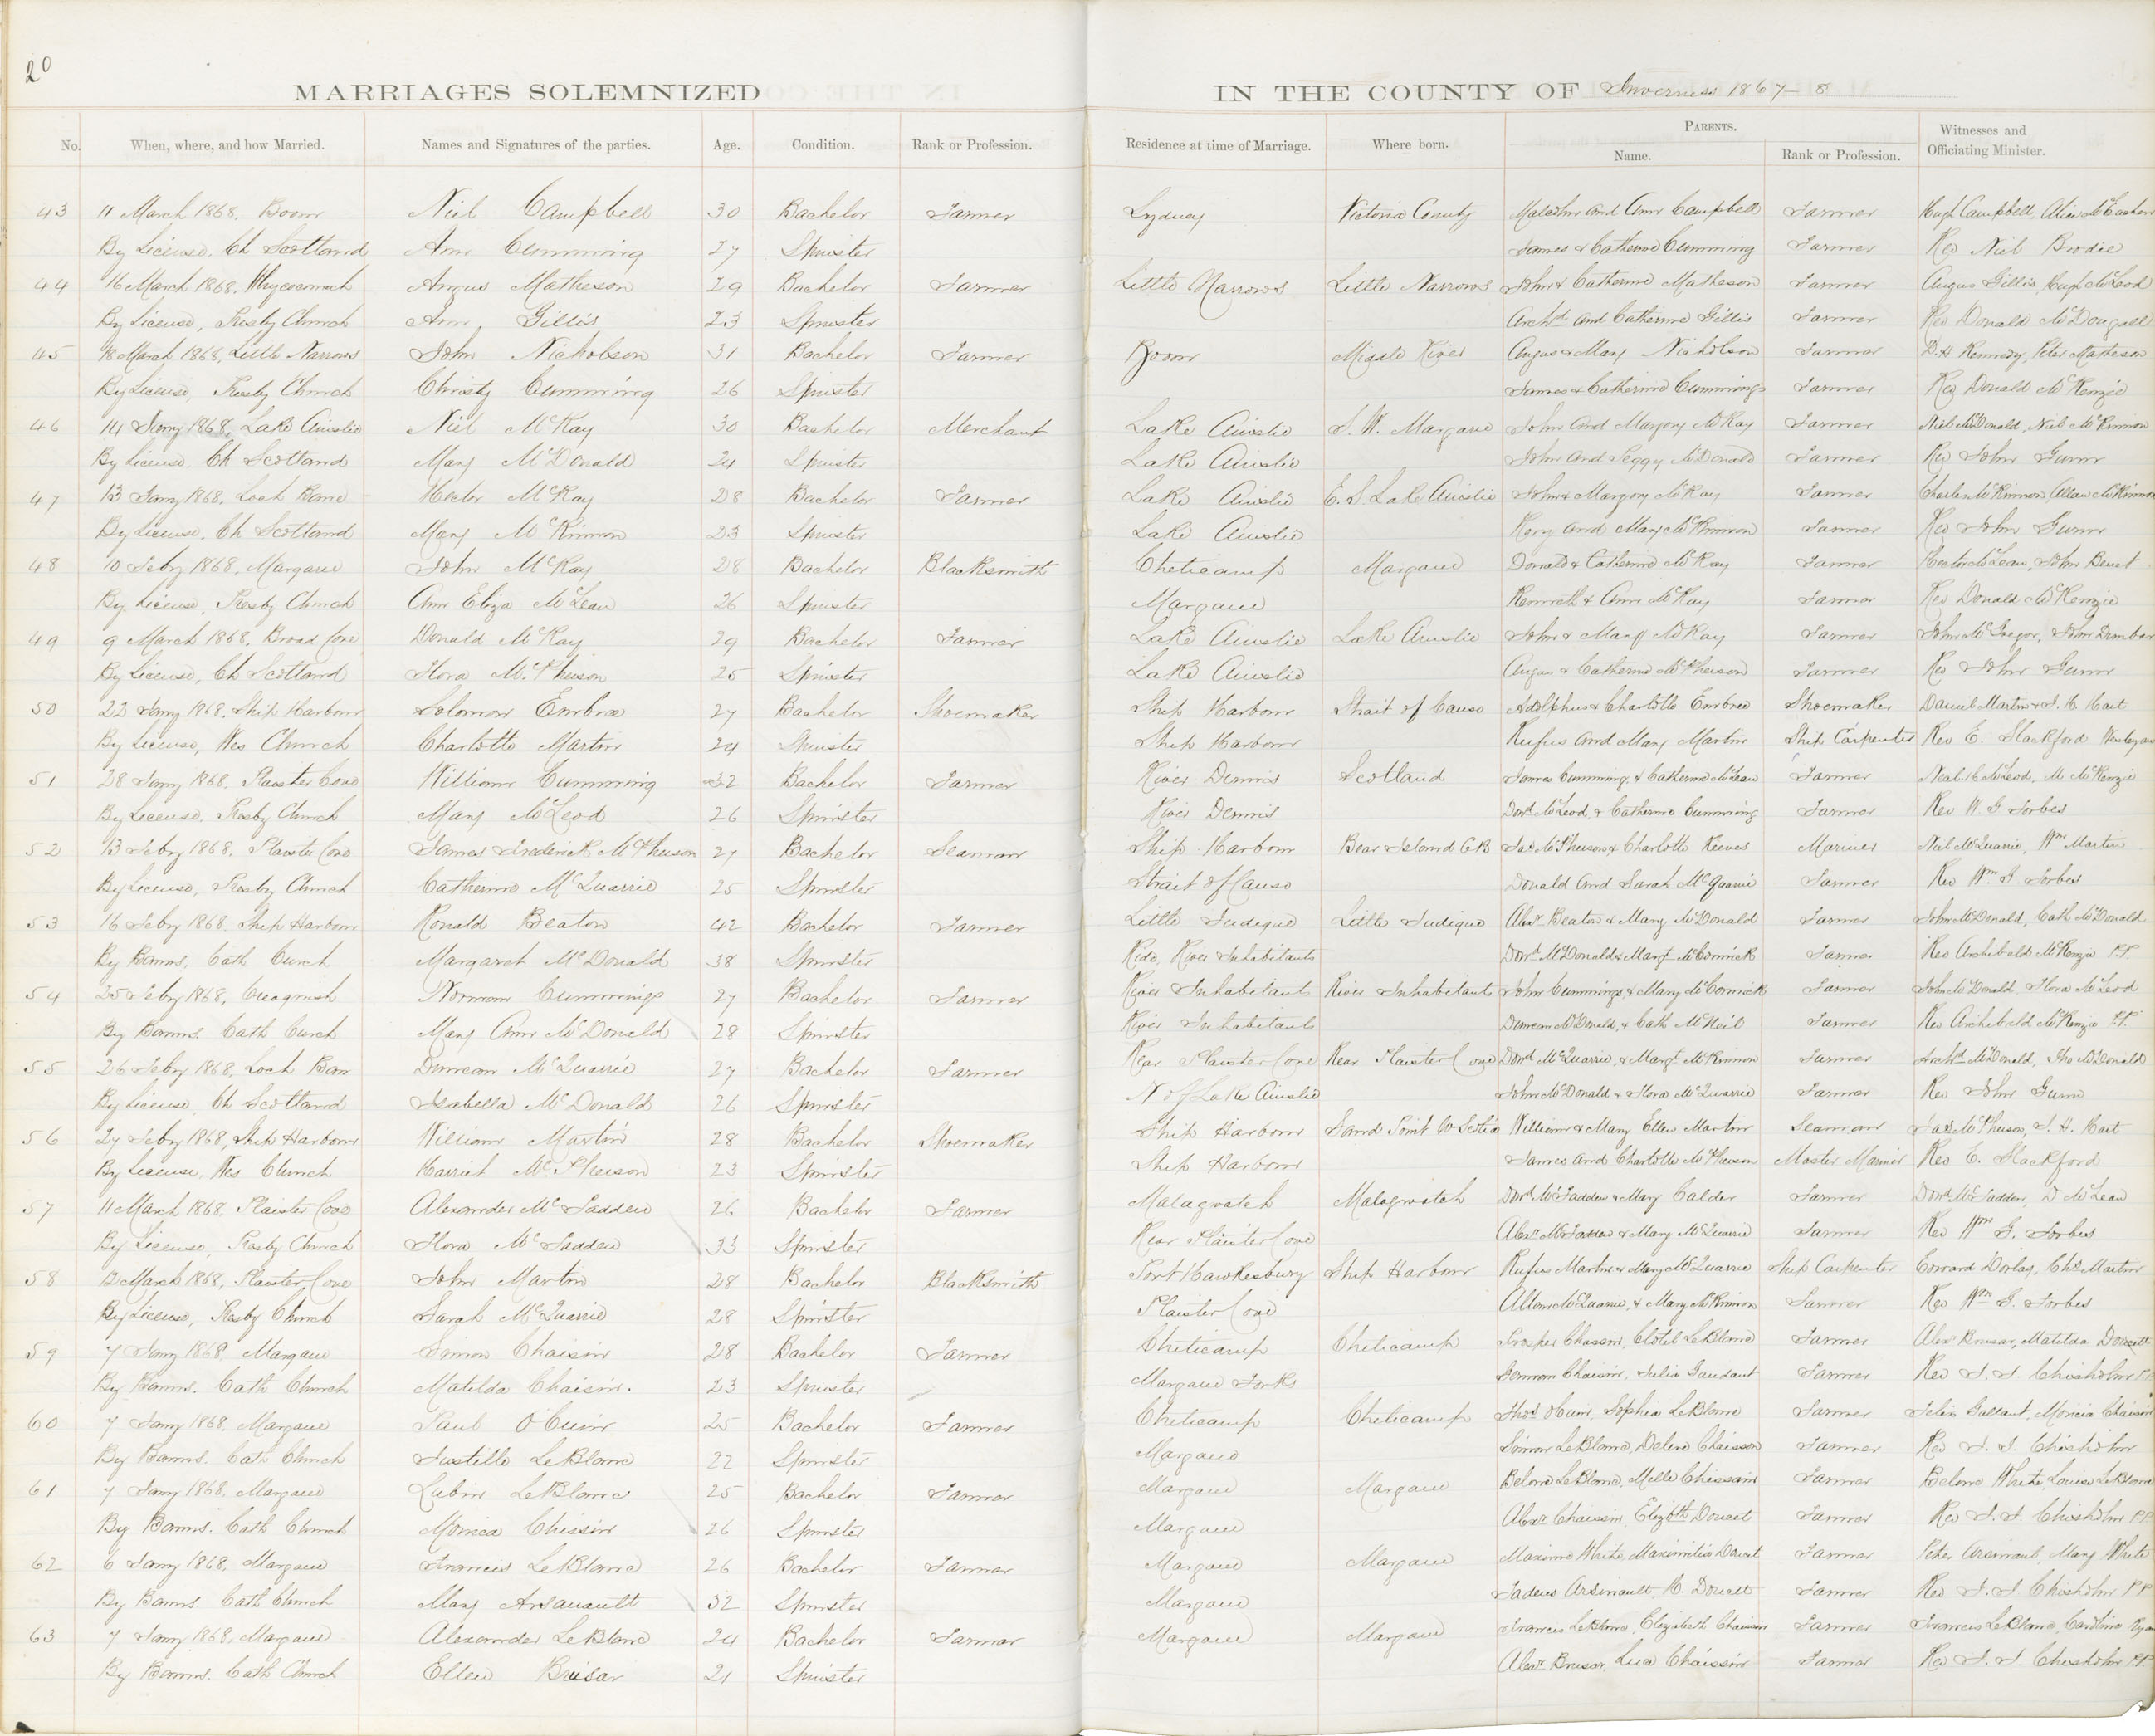 20
MARRIAGES SOLEMNIZED IN THE COUNTY OF Inverness 1867-8
No. When, where, and how Married. Names and Signatures of the parties. Age. Condition. Rank or Profession. Residence at time of Marriage. Where born. PARENTS. Name. Rank or Profession. Witnesses and Officiating Minister.
43 11 March 1868, Boom Niel Campbell 30 Bachelor Farmer Sydney Victoria County Malcolm and Ann Campbell Farmer Hugh Campbell,
By License, Ch Scotland Ann Cumming 27 Spinster James & Catherine Cumming Farmer Rev Niel Brodie
44 16 March 1868, Whycocomah Angus Matheson 29 Bachelor Farmer Little Narrows Little Narrows John & Catherine Matheson Farmer Angus Gillis, Hugh McLeod
By License, Presby Church Ann Gillis 23 Spinster Archd and Catherine Gillis Farmer Rev Donald McDougall
45 18 March 1868, Little Narrows John Nicholson 31 Bachelor Farmer Boom Middle River Angus & Mary Nicholson Farmer D. H Kennedy, Peter Matheson
By License, Presby Church Christy Cumming 26 Spinster James & Catherine Cummings Farmer Rev Donald McKenzie
46 14 Jany 1868, Lake Ainslie Niel McKay 30 Bachelor Merchant Lake Ainslie S. W. Margaree John and Margery McKay Farmer Niel McDonald, Niel McKinnon
By License, Ch Scotland Mary McDonald 24 Spinster Lake Ainslie John and Peggy McDonald Farmer Rev John Gunn
47 13 Jany 1868, Loch Bane Hector McKay 28 Bachelor Farmer Lake Ainslie E. S. Lake Ainslie John & Margery McKay Farmer Charles McKinnon Allan McKinnon
By License, Ch Scotland Mary McKinnon 23 Spinster Lake Ainslie Rory and Mary McKinnon Farmer Rev John Gunn
48 10 Feby 1868, Margaree John McKay 28 Bachelor Blacksmith Cheticamp Margaree Donald & Catherine McKay Farmer Hector McLean, John
By License, Presby Church Ann Eliza McLean 26 Spinster Margaree Kenneth & Ann McKay Farmer Rev Donald McKenzie
49 9 March 1868, Broad Cove Donald McKay 29 Bachelor Farmer Lake Ainslie Lake Ainslie John & Mary McKay Farmer John McGregor, John Dunbar
By License, Ch Scotland Flora McPherson 25 Spinster Lake Ainslie Angus & Catherine McPherson Farmer Rev John Gunn
50 22 Jany 1868, Ship Harbour Solomon Embree 27 Bachelor Shoemaker Ship Harbour Strait of Canso Adolphus & Charlotte Embree Shoemaker Daniel Martin & J. H Hart
By License, Wes Church Charlotte Martin 24 Spinster Ship Harbour Rufus and Mary Martin Ship Carpenter Rev E. Slackford Wesleyan
51 28 Jany 1868, Plaister Cove William Cumming 32 Bachelor Farmer River Dennis Scotland James Cumming & Catherine McLean Farmer McLeod, M McKenzie
By License, Presby Church Mary McLeod 26 Spinster River Dennis Dond McLeod, & Catherine Cumming Farmer Rev W. G Forbes
52 13 Feby 1868, Plaister Cove James Frederick McPherson 27 Bachelor Seaman Ship Harbour Bear Island C B Jas McPherson & Charlotte Reeves Mariner Niel McQuarrie, Wm Martin
By License, Presby Church Catherine McQuarrie 25 Spinster Strait of Canso Donald and Sarah McQuarrie Farmer Rev Wm G. Forbes
53 16 Feby 1868, Ship Harbour Ronald Beaton 42 Bachelor Farmer Little Judique Little Judique Alexr Beaton & Mary McDonald Farmer John McDonald, Cath McDonald
By Banns, Cath Curch Margaret McDonald 38 Spinster River Inhabitants Dond McDonald & Margt McCormick Farmer Rev Archibald McKenzie P.P.
54 25 Feby 1868, Creagnish Norman Cummings 27 Bachelor Farmer River Inhabitants River Inhabitants John Cummings & Mary McCormick Farmer John McDonald, Flora McLeod
By Banns, Cath Curch Mary Ann McDonald 28 Spinster River Inhabitants Duncan McDonald, & Cath McNeil Farmer Rev Archibald McKenzie P.P.
55 26 Feby 1868, Loch Ban Duncan McQuarrie 27 Bachelor Farmer Rear Plaister Cove Rear Plaister Cove Dond McQuarrie, & Margt McKinnon Farmer Archd McDonald, Jno McDonald
By License, Ch Scotland Isabella McDonald 26 Spinster N of Lake Ainslie John McDonald & Flora McQuarrie Farmer Rev John Gunn
56 27 Feby 1868, Ship Harbour William Martin 28 Bachelor Shoemaker Ship Harbour Sand Point N Scotia William & Mary Ellen Martin Seaman Jas McPherson, J. H. Hart
By License, Wes Church Harriet McPherson 23 Spinster Ship Harbour James and Charlotte McPherson Master Mariner Rev E. Slackford
57 11 March 1868, Plaister Cove Alexander McFadden 26 Bachelor Farmer Malagwatch Malagwatch Dond McFadden & Mary Calder Farmer Dond McFadden, D McLean
By License, Presby Church Flora McFadden 33 Spinster Rear Plaister Cove Alexr McFadden & Mary McQuarrie Farmer Rev Wm G. Forbes
58 12 March 1868, Plaister Cove John Martin 28 Bachelor Blacksmith Port Hawkesbury Ship Harbour Rufus Martin & Mary McQuarrie Ship Carpenter Edward Chs Martin
By License, Presby Church Sarah McQuarrie 28 Spinster Plaister Cove Allan McQuarrie, & Mary McKinnon Farmer Rev Wm G. Forbes
59 7 Jany 1868, Margaree Simon Chaisin 28 Bachelor Farmer Cheticamp Cheticamp Prosper Chaisin, Clotel LeBlanc Farmer Alexr Brusar, Matilda Doucett
By Banns. Cath Church Matilda Chaisin. 23 Spinster Margaree Forks Chaisin, Julia Gaudant Farmer Rev J. J. Chisholm P.P.
60 7 Jany 1868, Margaree Paul O'Cuinn 25 Bachelor Farmer Cheticamp Cheticamp Thos OCunn, Sophia LeBlanc Farmer Felix Gallant, Monica Chaisin
By Banns. Cath Church Justille LeBlanc 22 Spinster Margaree Simon LeBlanc, Deline Chaisson Farmer Rev J. J. Chisholm
61 7 Jany 1868, Margaree Lubin LeBlanc 25 Bachelor Farmer Margaree Margaree Belone LeBlanc, Melle Chissain Farmer Belone White, Louise LeBlanc
By Banns. Cath Church Monica Chissin 26 Spinster Margaree Alexr Chaisin, Elizbth Doucet Farmer Rev J. J. Chisholm P.P.
62 6 Jany 1868, Margaree Francis LeBlanc 26 Bachelor Farmer Margaree Margaree Maxime White, Maximilia Doucet Farmer Peter Arsinault, Mary White
By Banns. Cath Church Mary Arsanault 32 Spinster Margaree Fadeus Arsinault, H. Doucett Farmer Rev J. J Chisholm P.P.
63 7 Jany 1868, Margaree Alexander LeBlanc 24 Bachelor Farmer Margaree Margaree Francis LeBlanc, Elizabeth Chaisin Farmer Francis LeBlanc,
By Banns. Cath Church Ellen Brusar 21 Spinster Alexr Brusar, Luce Chaissin Farmer Rev J. J Chisholm P.P.